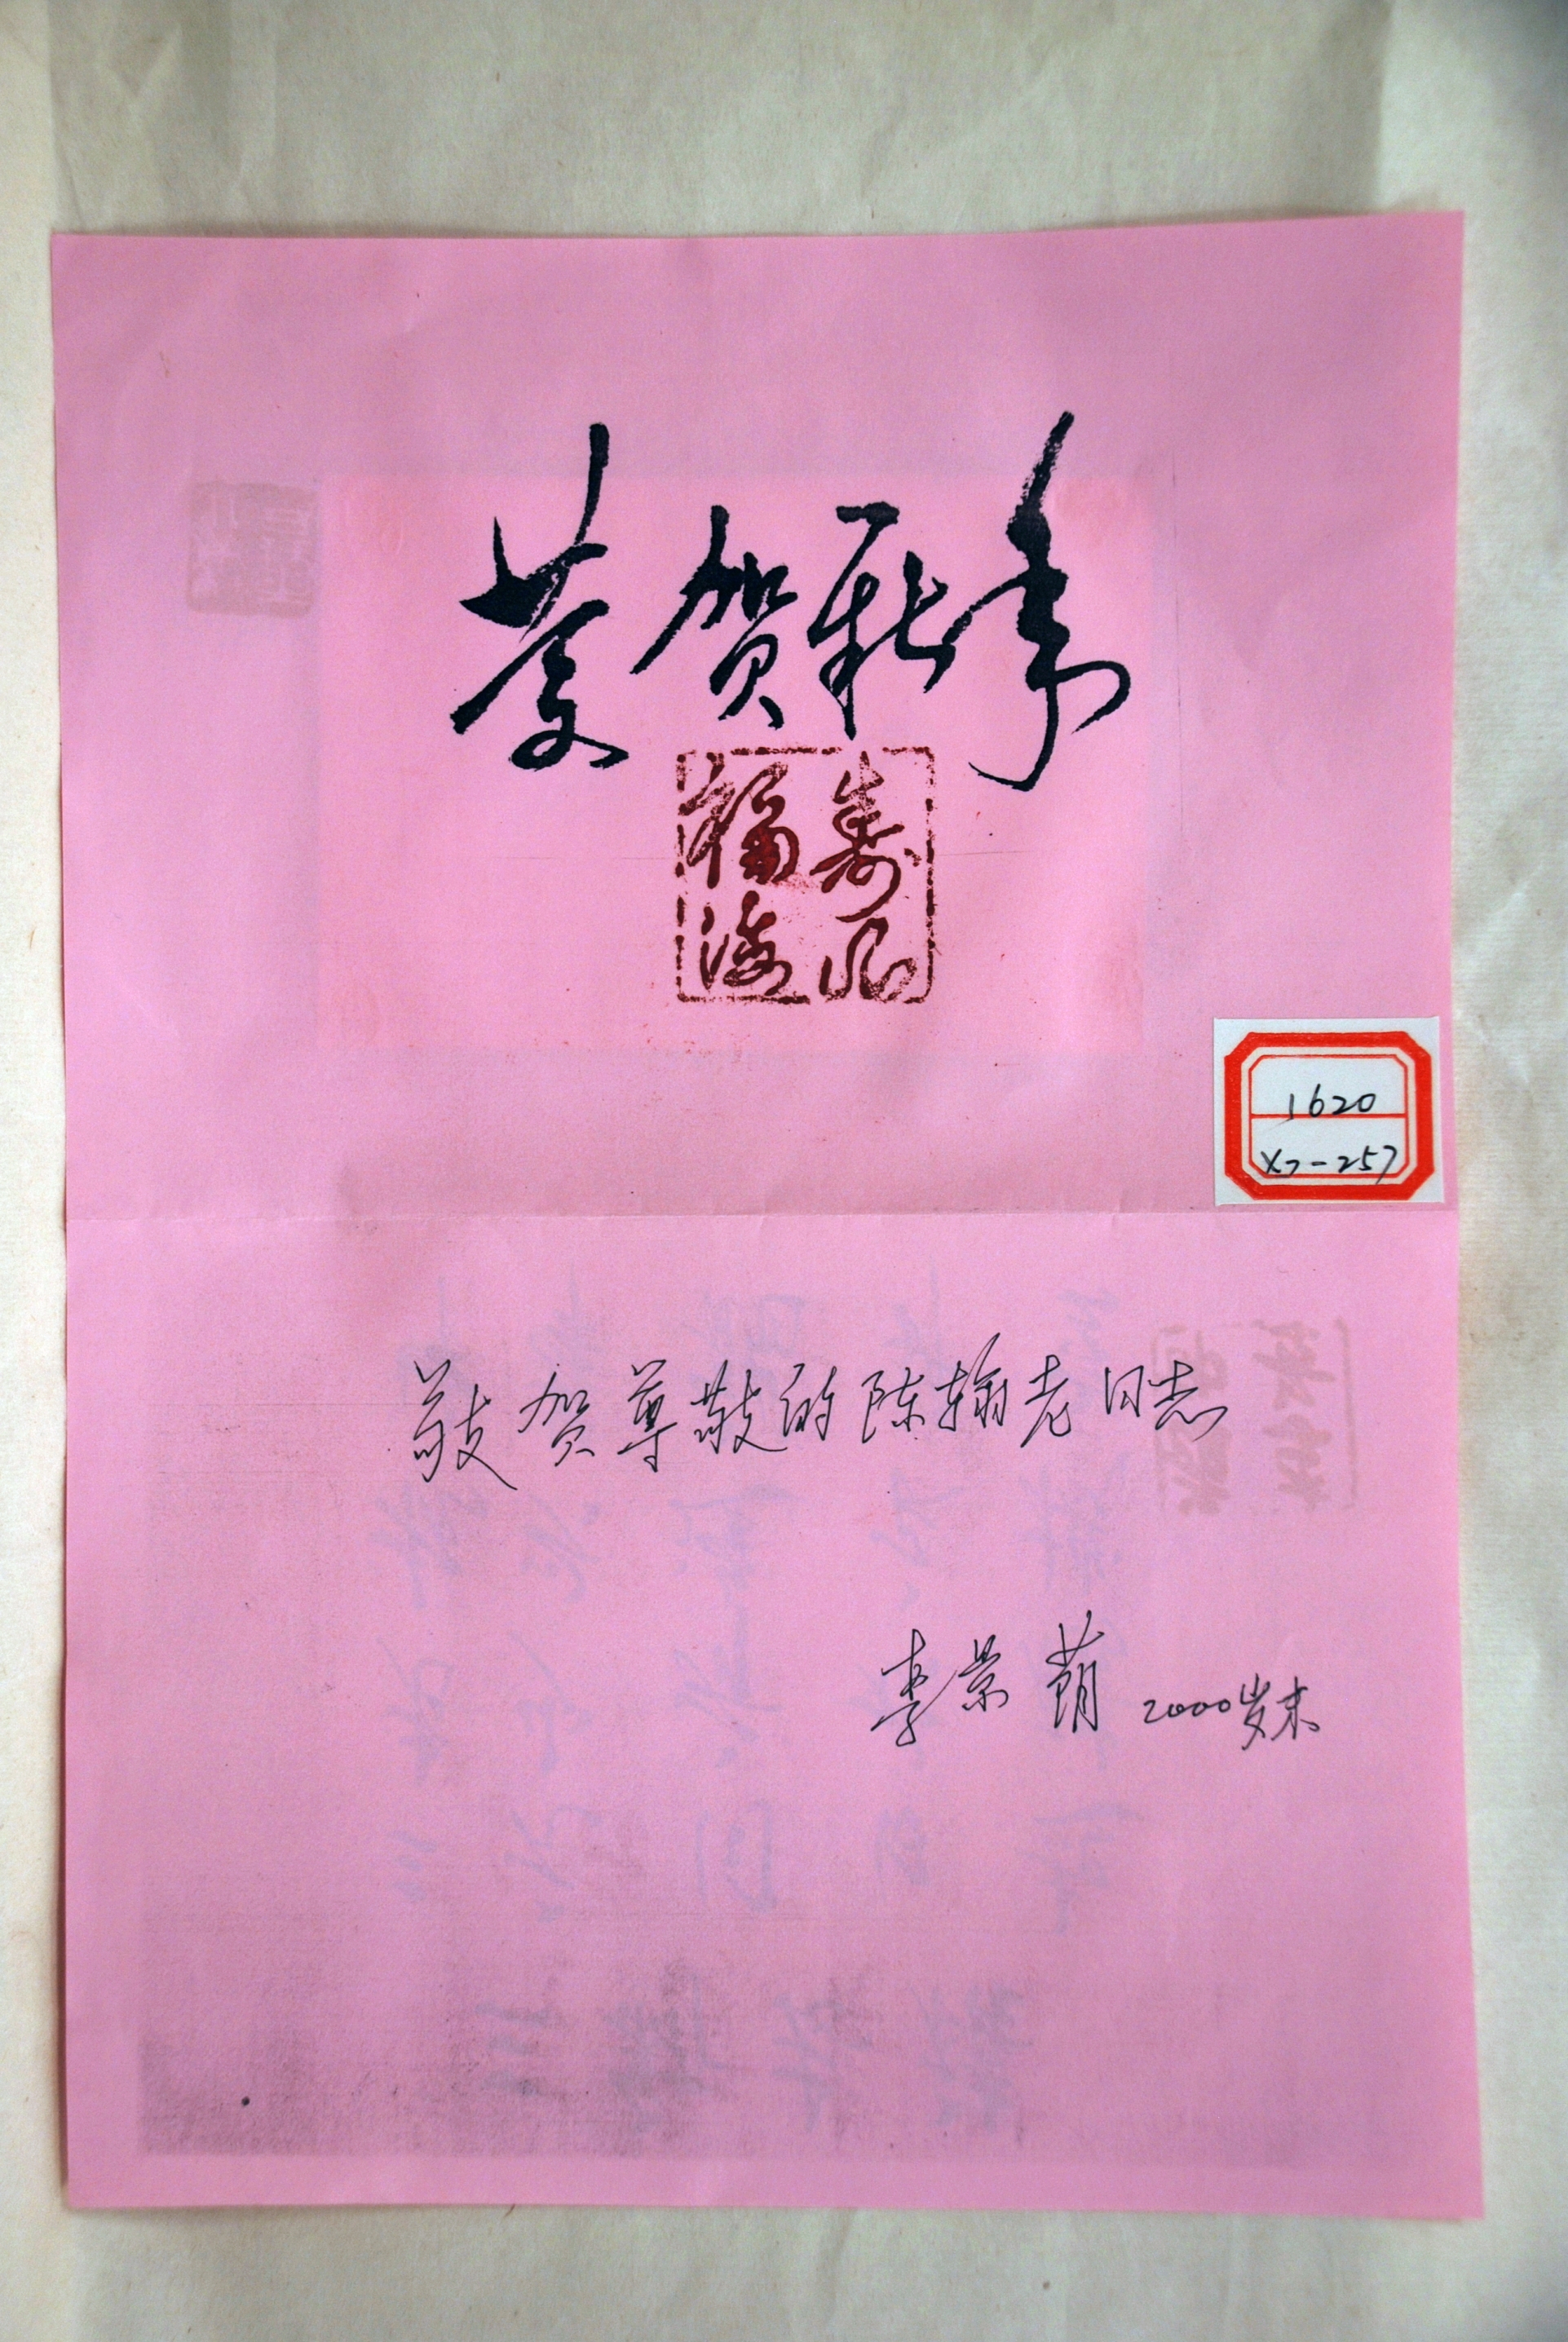 恭贺新年
寿山
福海
1620
X7-257
敬贺尊敬的陈翰老同志
李景 2000岁末